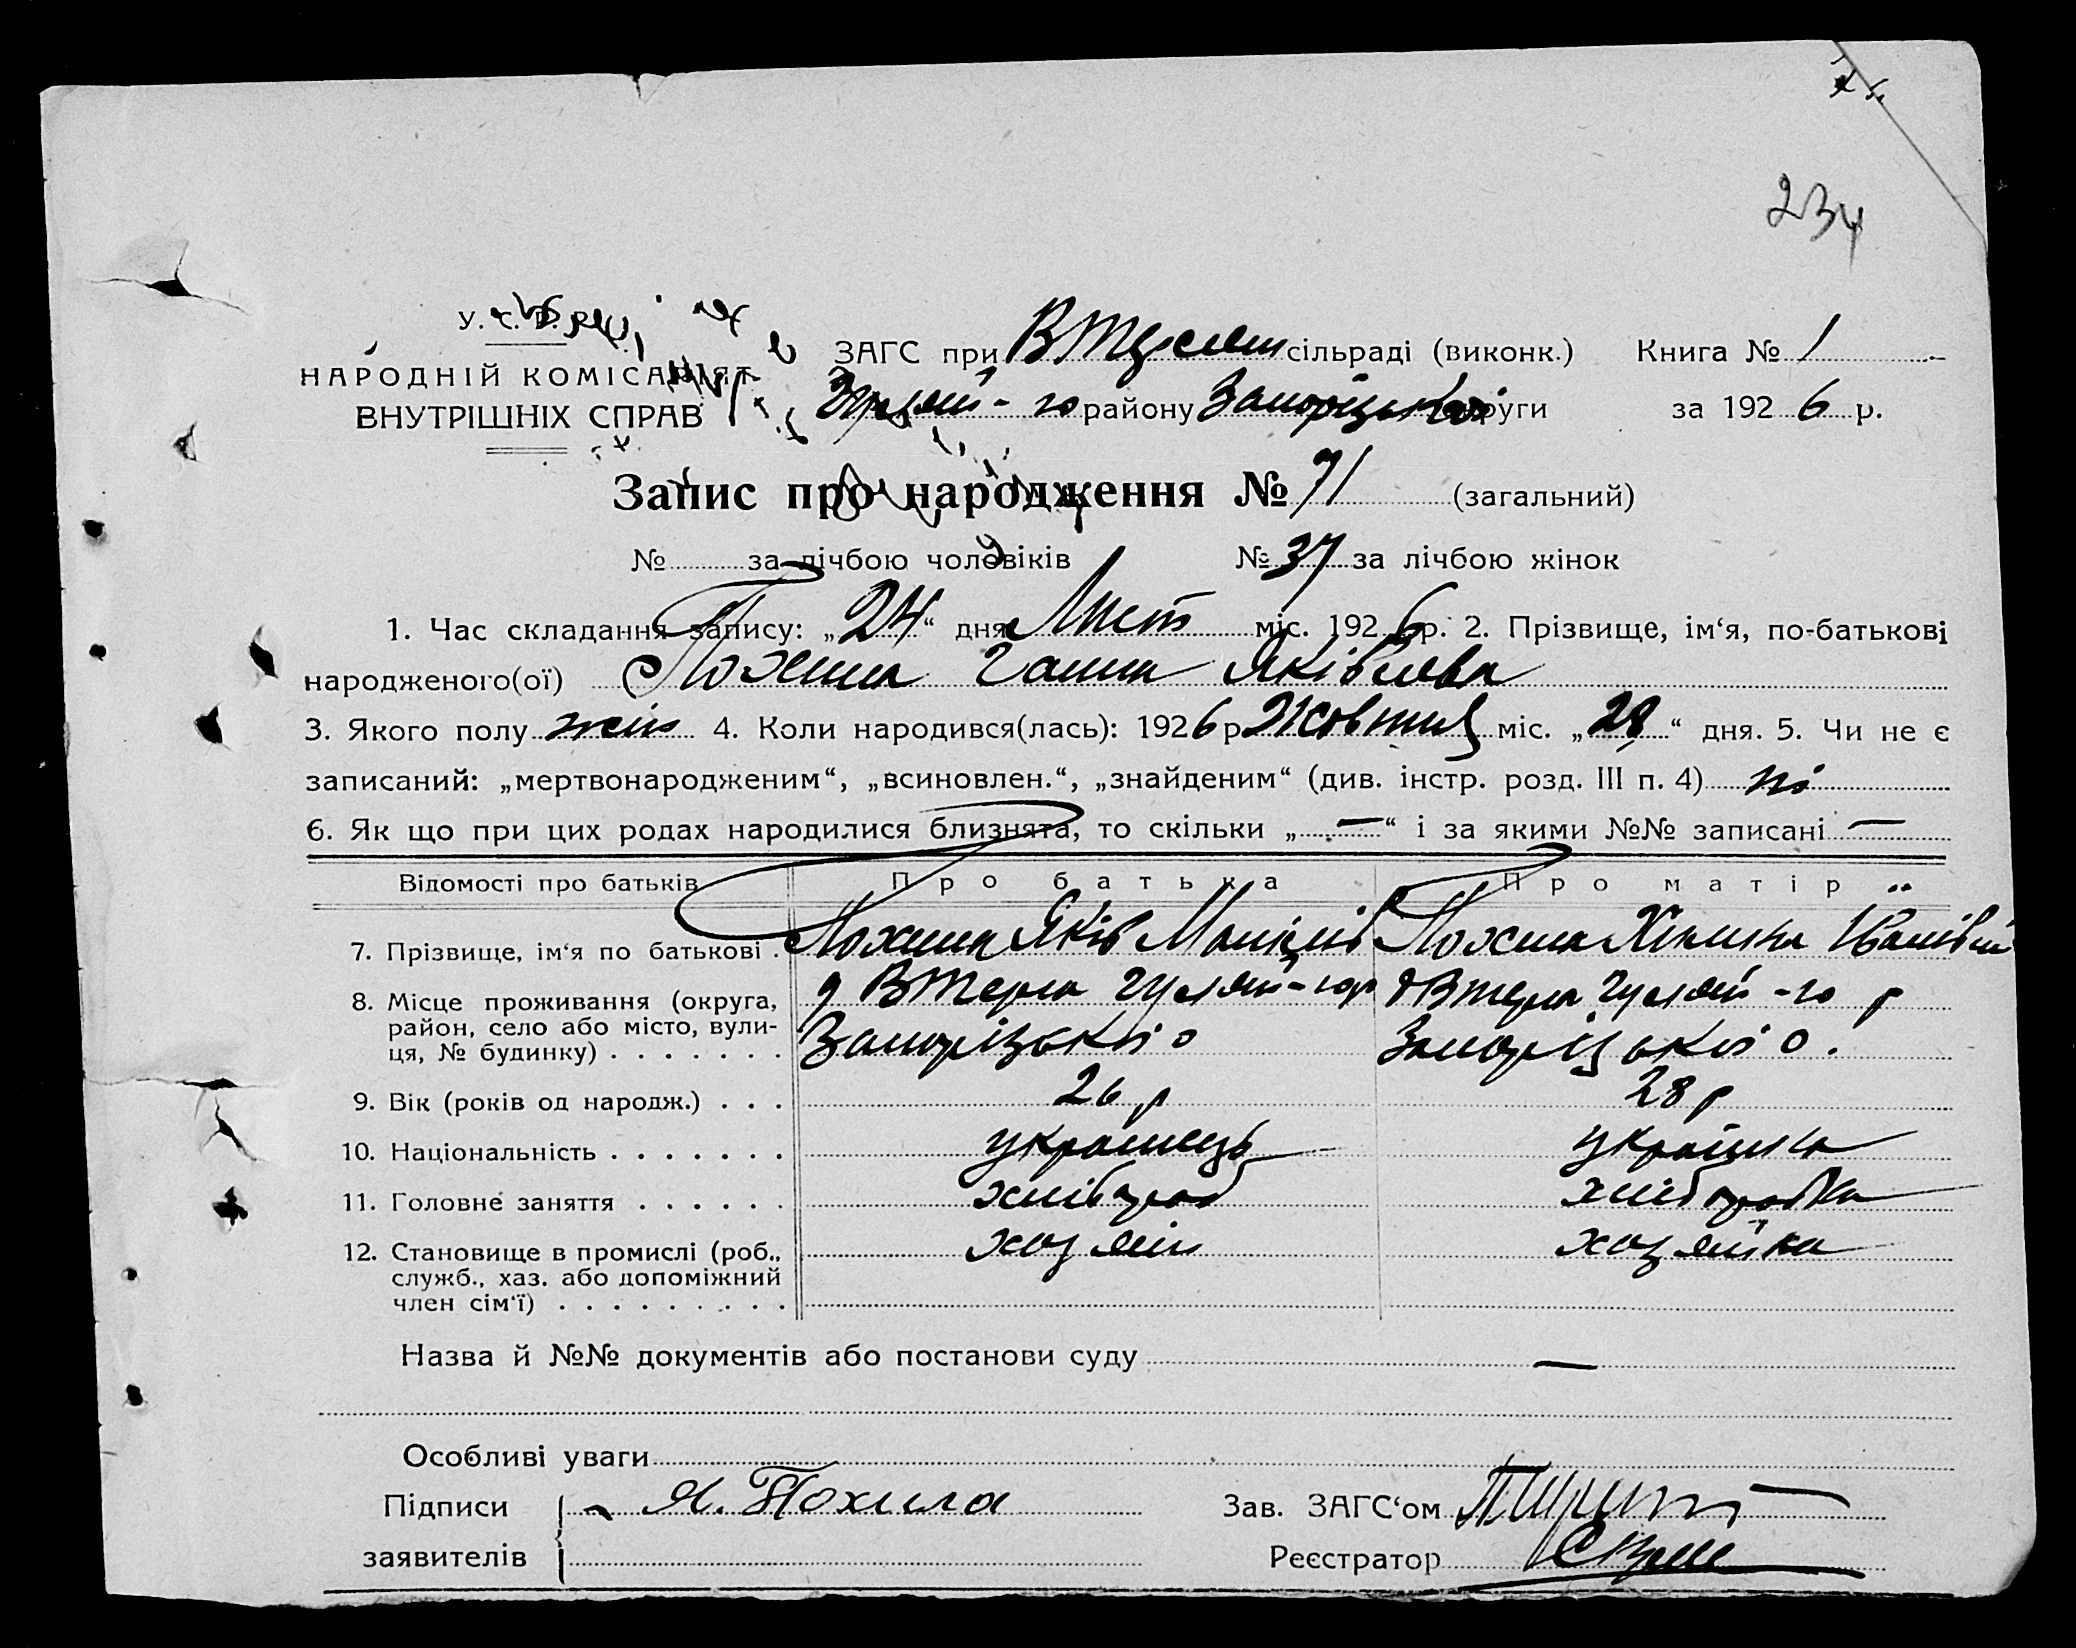 234
У. С. Р. Р.
НАРОДНІЙ КОМІСАРІЯТ
ВНУТРІШНІХ СПРАВ
ЗАГС при сільраді (виконк.) Книга № 1
району Запорізької округи за 1926 р.
Запис про народження № 71 (загальний)
№ за лічбою чоловіків № 37 за лічбою жінок
1. Час складання запису: „24“ дня Лист міс. 1926 р. 2. Прізвище, ім‘я, по-батькові
народженого(ої) Похила Ганна Яківлева
3. Якого полу жін 4. Коли народився(лась): 1926 р Жовтня міс. „28“ дня. 5. Чи не є
записаний: „мертвонародженим“, „всиновлен.“, „знайденим“ (див. інстр. розд. III п. 4) ні
6. Як що при цих родах народилися близнята, то скільки „ — “ і за якими №№ записані —
Відомості про батьків Про батька Про матір
7. Прізвище, ім‘я по батькові . Похила Яків Похила Іванівна
8. Місце проживання (округа,
район, село або місто, вули-
ця, № будинку) . . . . . . . Гуляй-го р Гуляй-го р
Запорізької о Запорізької о.
9. Вік (років од народж.) . . . 26 р 28 р
10. Національність . . . . . . . українець українка
11. Головне заняття . . . . . . хлібороб хліборобка
12. Становище в промислі (роб.,
служб., хаз. або допоміжний
член сім‘ї) . . . . . . . . . хазяїн хазяйка
Назва й №№ документів або постанови суду —
Особливі уваги
Підписи Я. Похила Зав. ЗАГС‘ом
заявителів Реєстратор